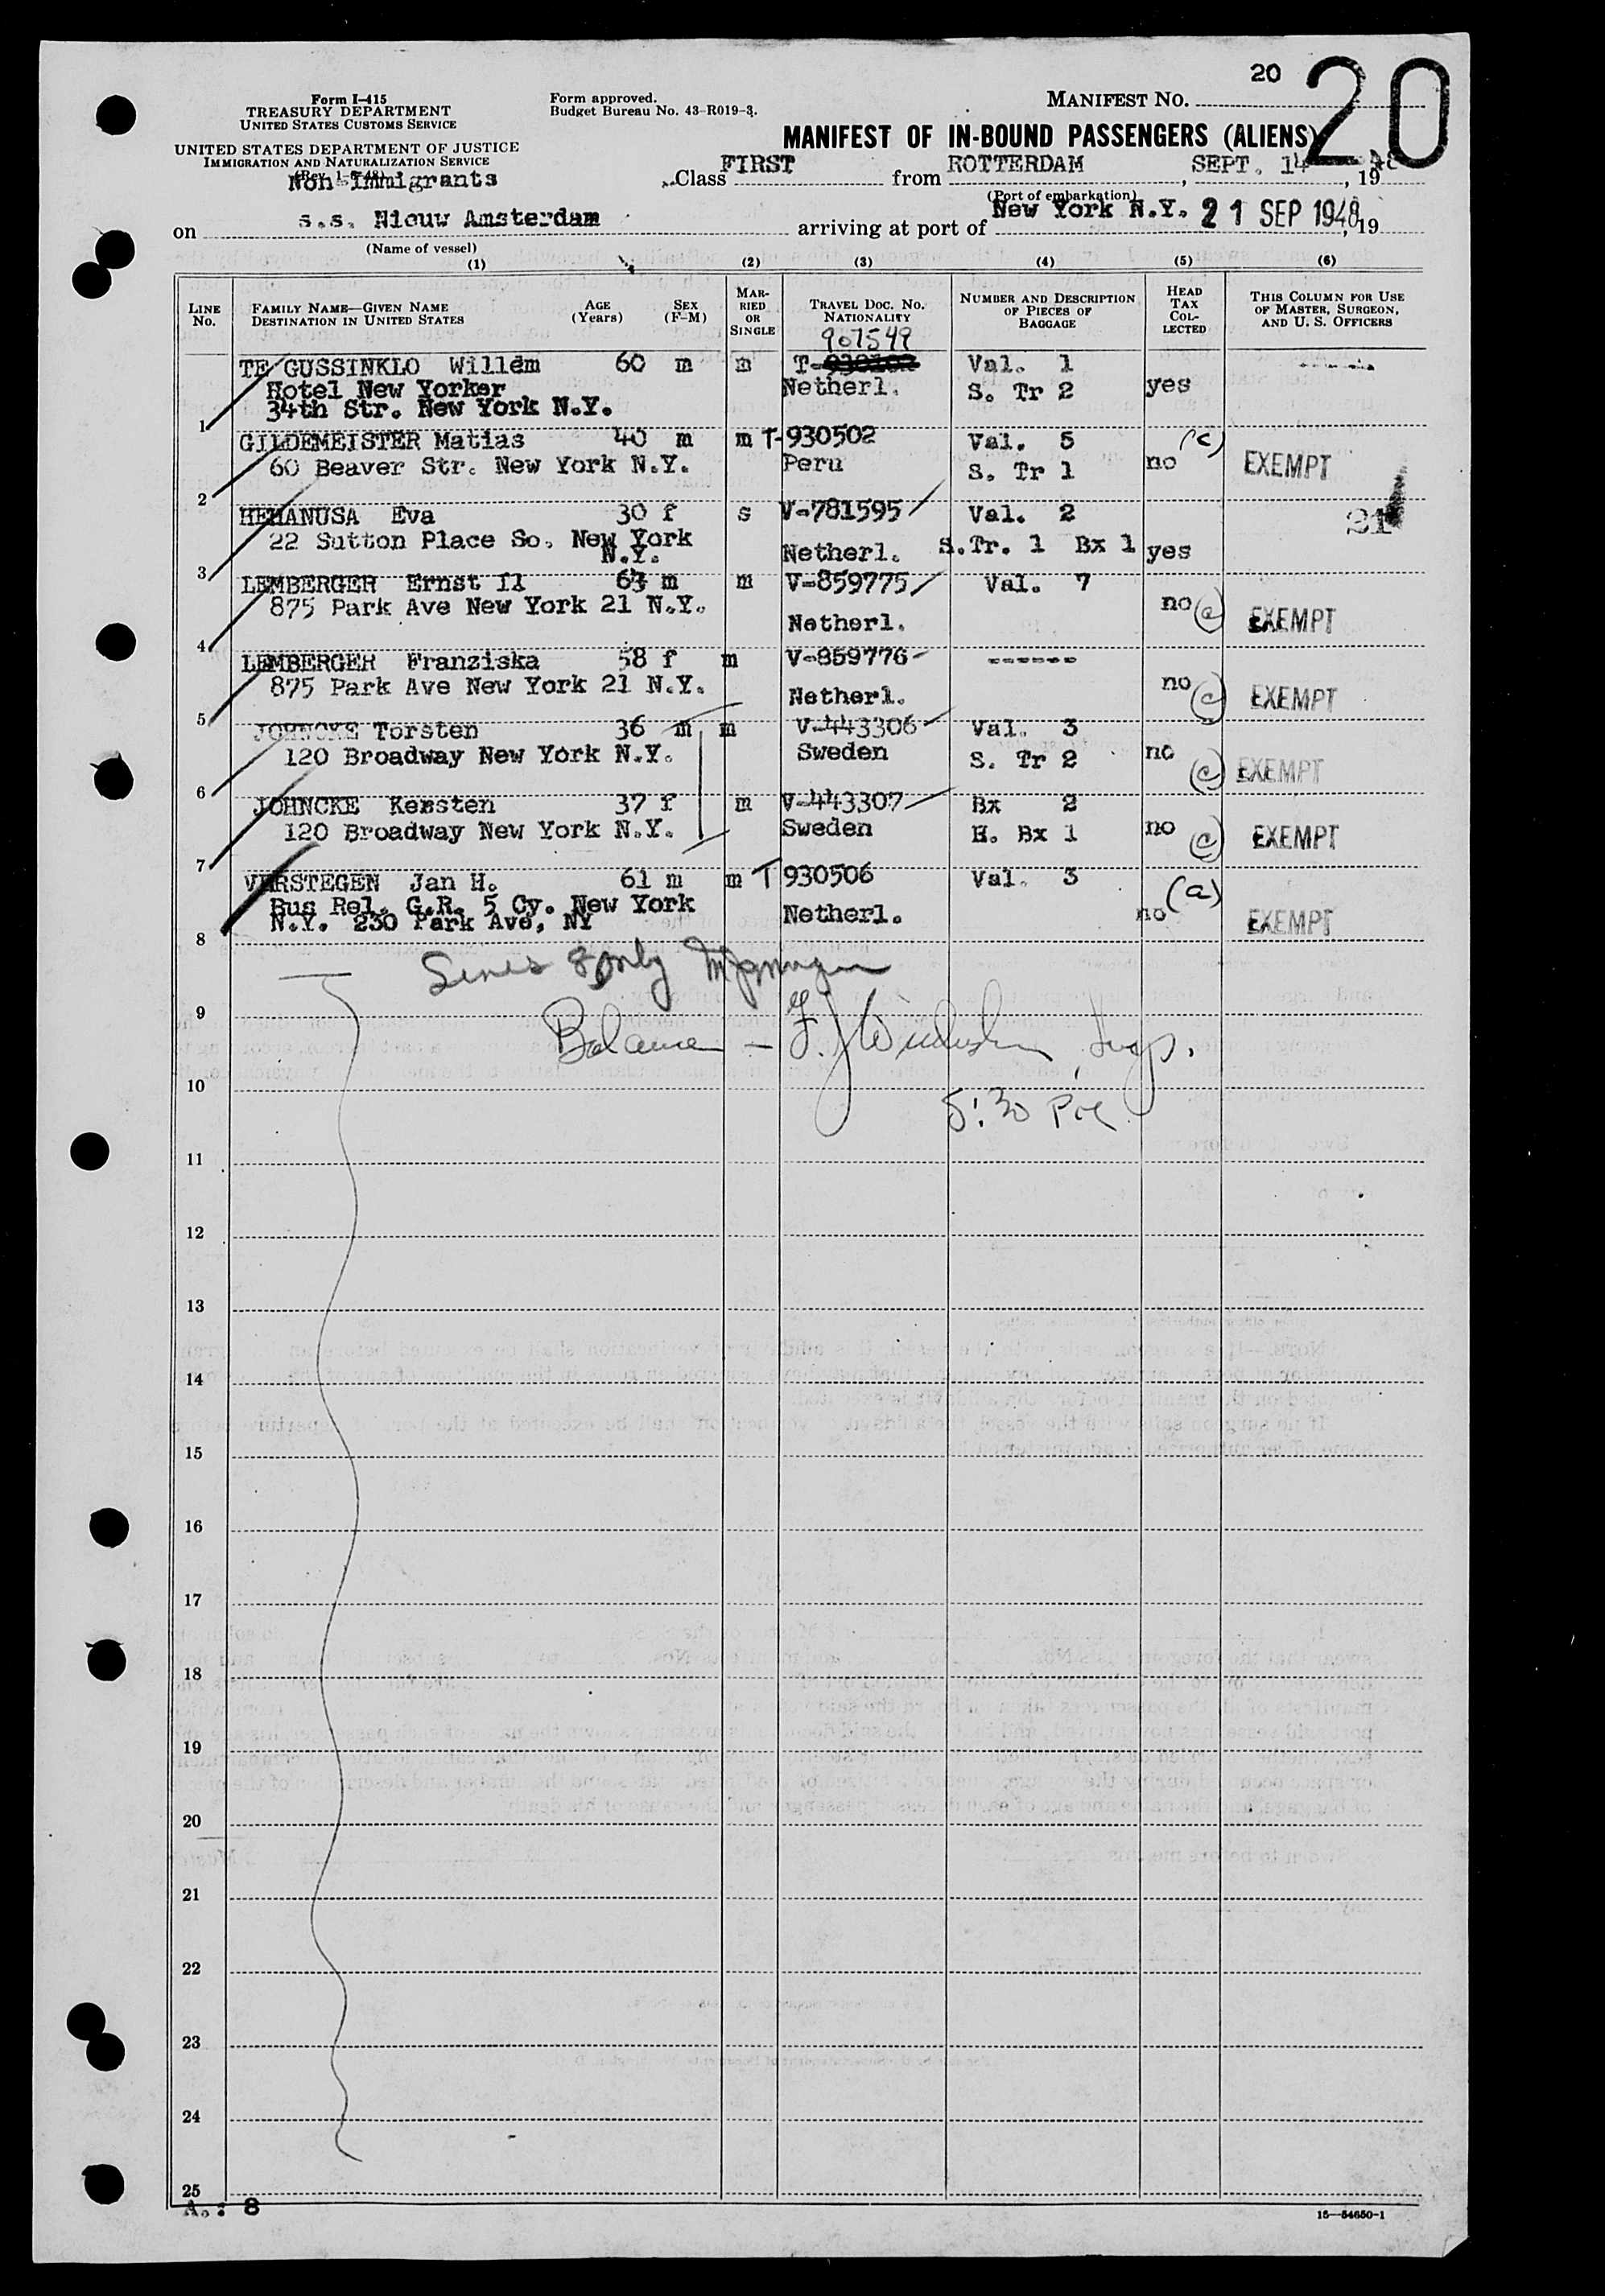 20
20
Form I-415
TREASURY DEPARTMENT
UNITED STATES CUSTOMS SERVICE
UNITED STATES DEPARTMENT OF JUSTICE
IMMIGRATION AND NATURALIZATION SERVICE
(Rev. 1-5-48)
Non Immigrants
Form approved.
Budget Bureau No. 43-R019-3.
MANIFEST NO.
MANIFEST OF IN-BOUND PASSENGERS (ALIENS)
Class FIRST from ROTTERDAM, SEPT. 14, 1948
(Port of embarkation)
on s.s. Nieuw Amsterdam arriving at port of New York N.Y. 21 SEP 1948, 19
(Name of vessel)
(1) (2) (3) (4) (5) (6)
LINE No. FAMILY NAME—GIVEN NAME DESTINATION IN UNITED STATES AGE (Years) SEX (F-M) MARRIED OR SINGLE TRAVEL DOC. NO. NATIONALITY NUMBER AND DESCRIPTION OF PIECES OF BAGGAGE HEAD TAX COLLECTED THIS COLUMN FOR USE OF MASTER, SURGEON, AND U. S. OFFICERS
907549
TE GUSSINKLO Willem 60 m m T- Val. 1
Hotel New Yorker Netherl. S. Tr 2 yes
34th Str. New York N.Y.
1
GILDEMEISTER Matias 40 m m T-930502 Val. 5 (c)
60 Beaver Str. New York N.Y. Peru S. Tr 1 no EXEMPT
2
HEMANUSA Eva 30 f s V-781595 Val. 2 21
22 Sutton Place So. New York N.Y. Netherl. S.Tr. 1 Bx 1 yes
3
LEMBERGER Ernst Il 63 m m V-859775 Val. 7
875 Park Ave New York 21 N.Y. Netherl. no (c) EXEMPT
4
LEMBERGER Franziska 58 f m V-859776 ------
875 Park Ave New York 21 N.Y. Netherl. no (c) EXEMPT
5
JOHNCKE Torsten 36 m m V-443306 Val. 3
120 Broadway New York N.Y. Sweden S. Tr 2 no (c) EXEMPT
6
JOHNCKE Kersten 37 f m V-443307 Bx 2
120 Broadway New York N.Y. Sweden H. Bx 1 no (c) EXEMPT
7
VERSTEGEN Jan H. 61 m m T 930506 Val. 3 (a)
Bus Rel. G.R. 5 Cy. New York Netherl. no EXEMPT
N.Y. 230 Park Ave, NY
8
9
Balance - F.J. Insp.
10
5:30 PM
11
12
13
14
15
16
17
18
19
20
21
22
23
24
25
A.: 8
15—54650-1